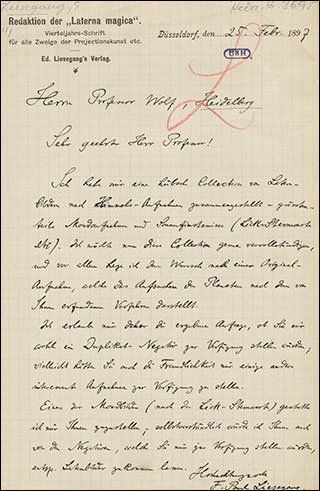 Liesegang, P.
Heid. Hs. 3691
Redaktion der „Laterna magica"
Vierteljahrs-Schrift
für alle Zweige der Projectionskunst etc.
Ed. Liesegang's Verlag.
Düsseldorf, den 25 Febr. 1897
UBH
Herrn Professor Wolf, Heidelberg
Sehr geehrter Herr Professor!
Ich habe mir eine hübsche Collection von Latern-
bildern nach Himmels-Aufnahmen zusammengestellt - grössten-
teils Mondaufnahmen und Sonnenfinsternisse (Lick-Sternwarte
etc). Ich möchte nun diese Collection gerne vervollständigen,
und vor allem hege ich den Wunsch nach einer Original-
Aufnahme, welche das Aufsuchen der Planeten nach dem von
Ihnen erfundenen Verfahren darstellt.
Ich erlaube mir daher die ergebene Anfrage, ob Sie mir
wohl ein Duplikat-Negativ zur Verfügung stellen würden,
vielleicht hätten Sie auch die Freundlichkeit mir einige andere
interessante Aufnahmen zur Verfügung zu stellen.
Eines der Mondbilder (nach der Lick-Sternwarte) gestatte
ich mir Ihnen zuzustellen; selbstverständlich würde ich Ihnen auch
von den Negativen, welche Sie mir zur Verfügung stellen würden,
entspr. Laternbilder zukommen lassen.
Hochachtungsvoll
F. Paul Liesegang